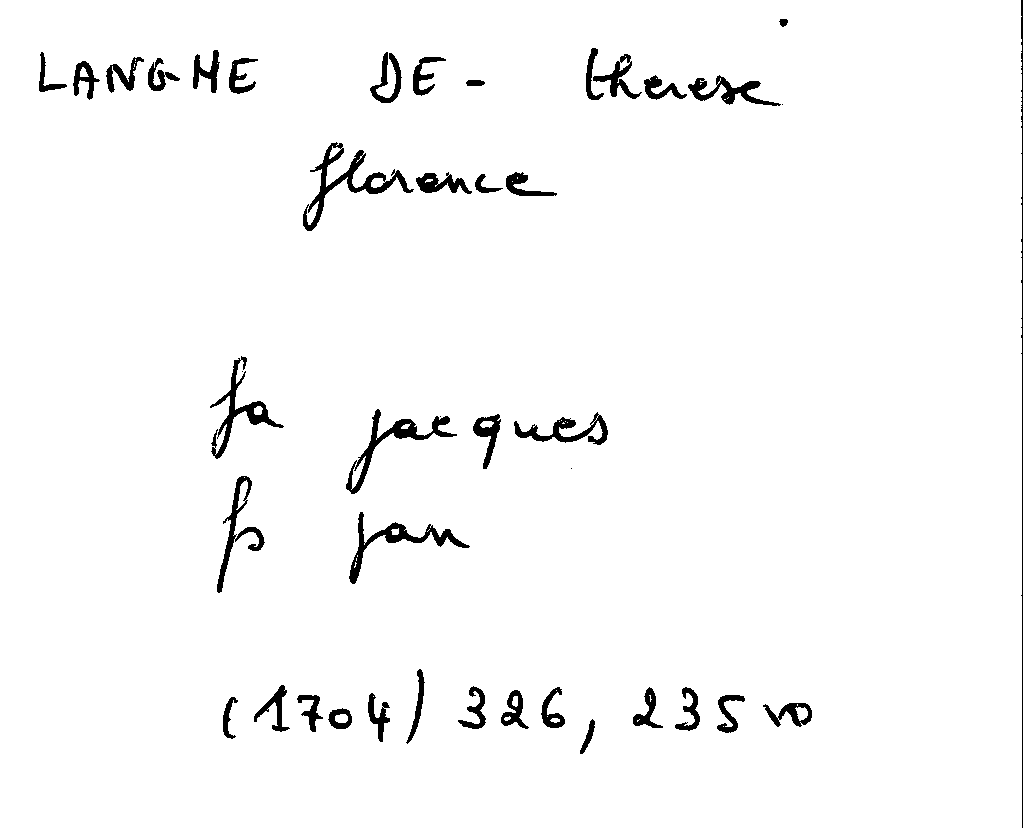 LANGHE DE - therese
florence
fa jacques
fs jan
(1704) 326, 235 vo